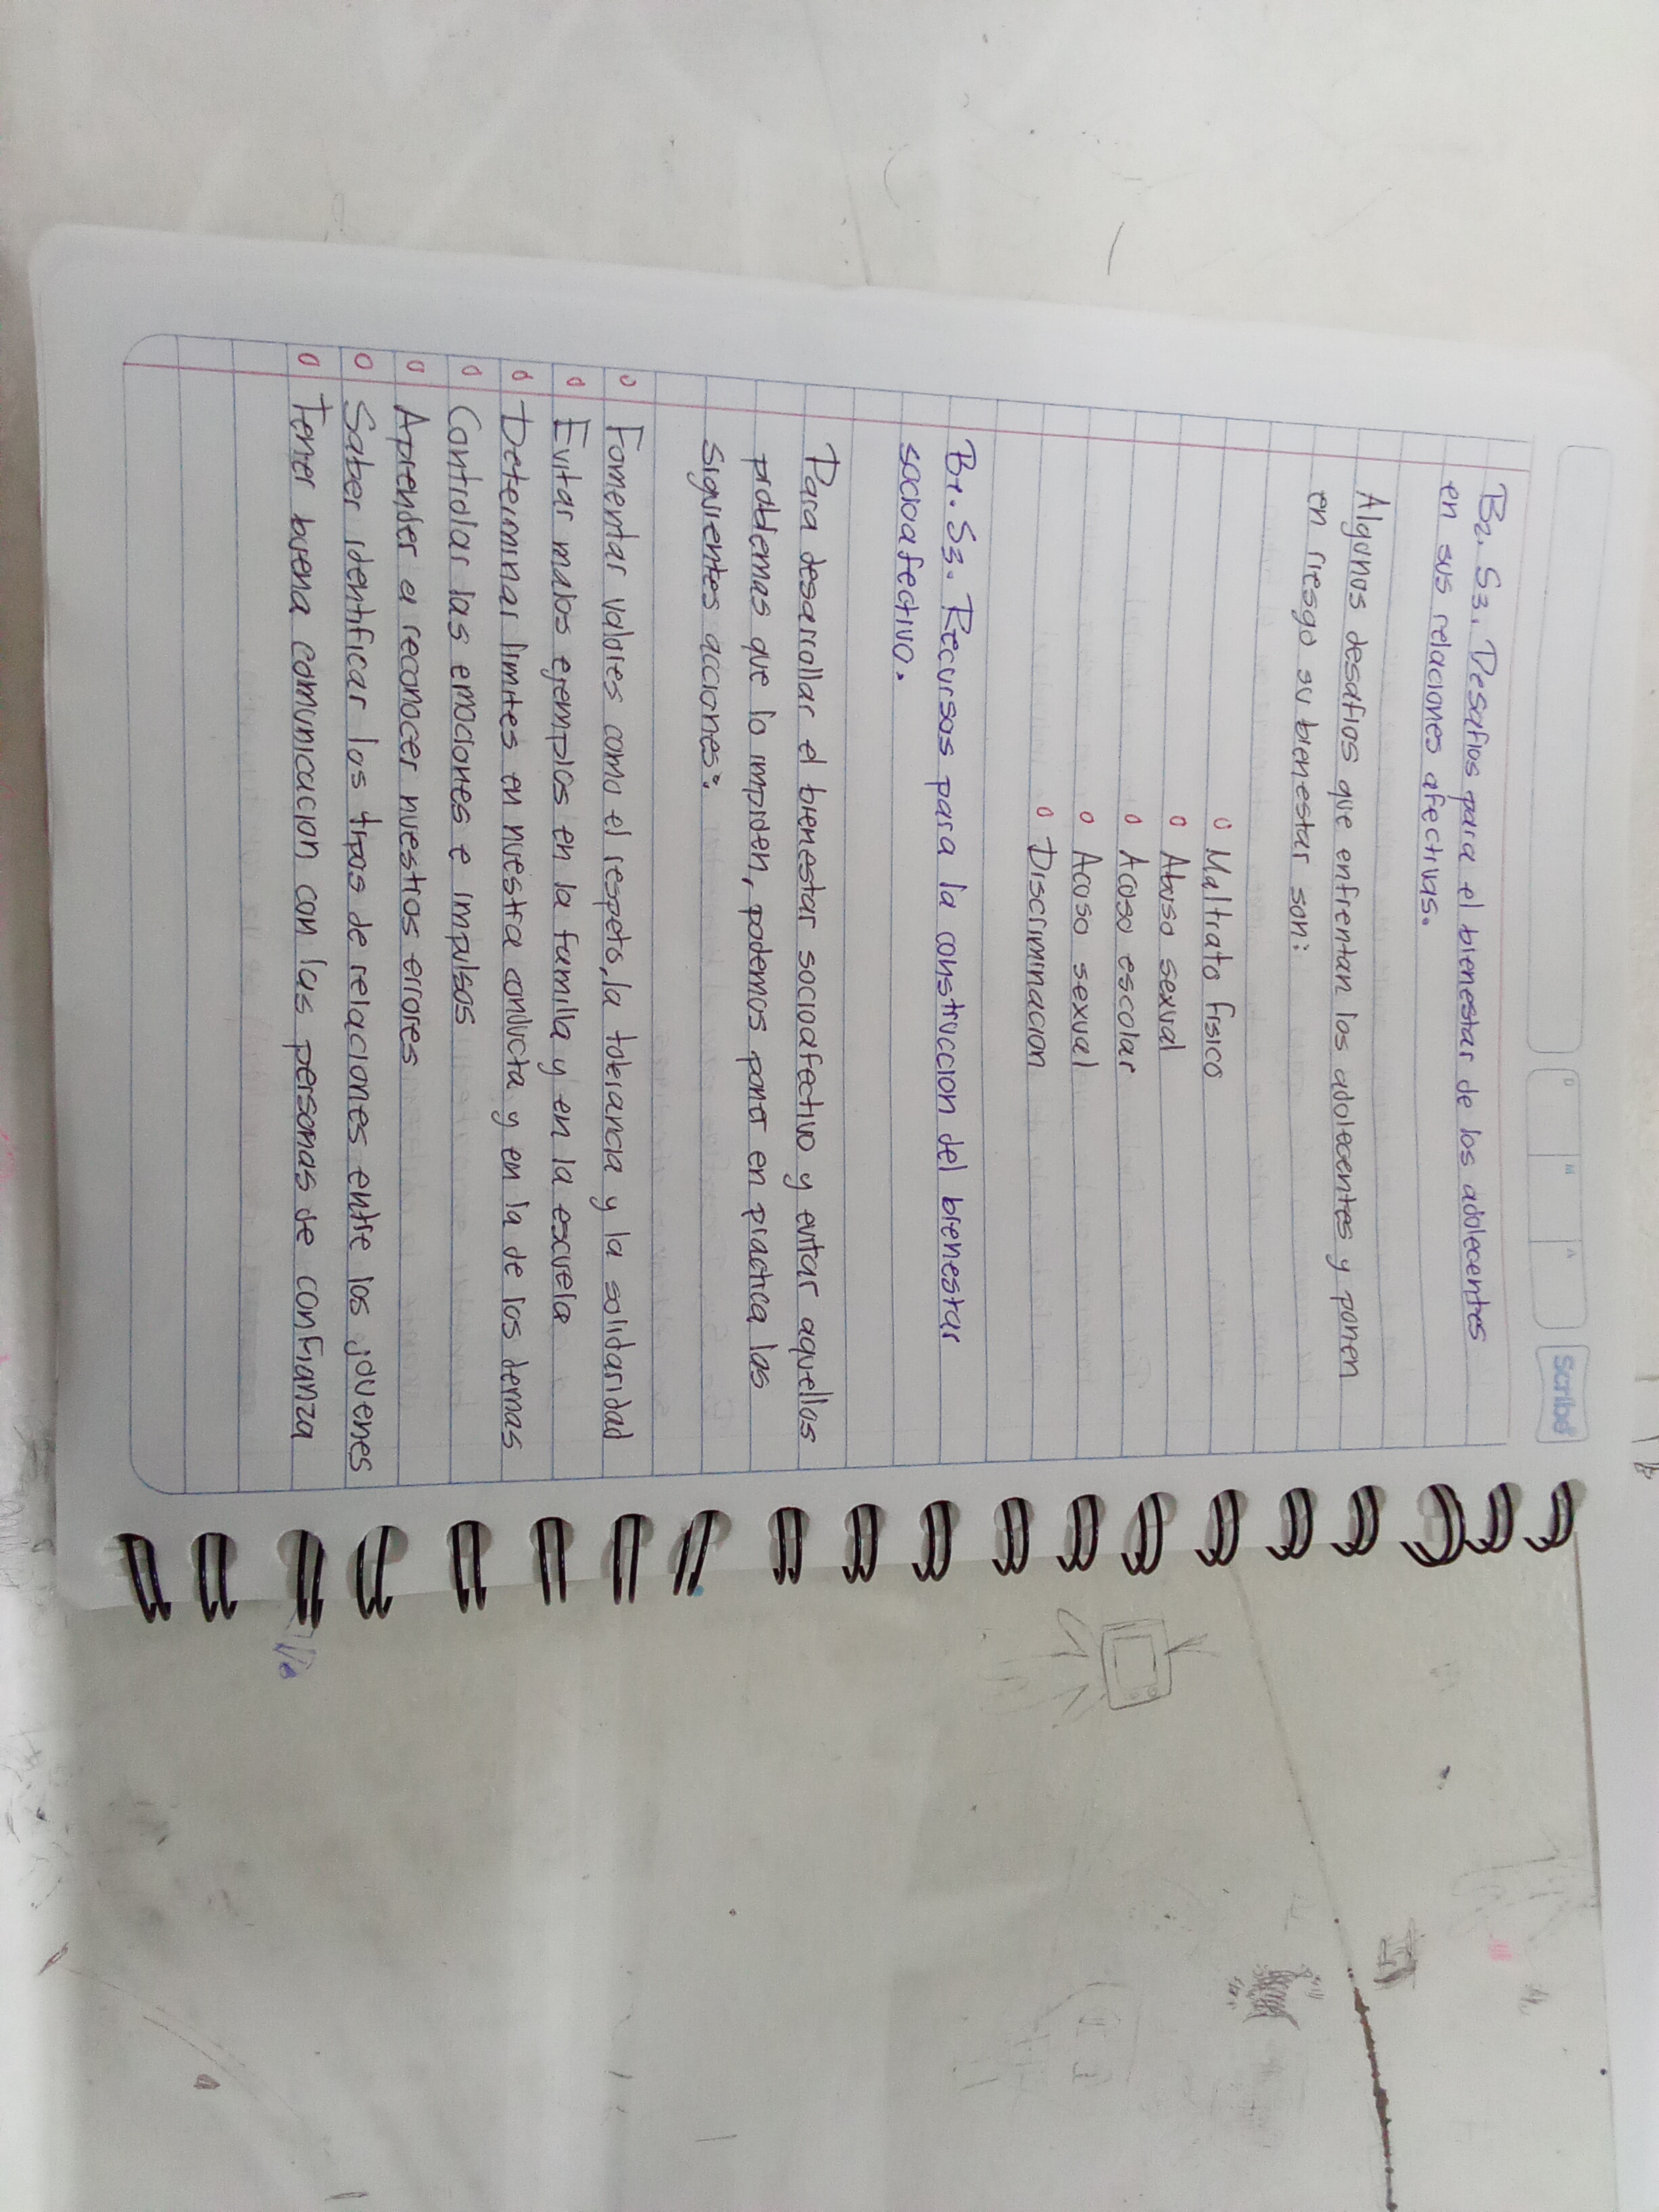 Scribe
D M A
B2. S3. Desafios para el bienestar de los adolecentes
en sus relaciones afectivas.
Algunos desafios que enfrentan los adolecentes y ponen
en riesgo su bienestar son:
o Maltrato fisico
o Abuso sexual
o Acoso escolar
o Acoso sexual
o Discriminacion
B1. S3. Recursos para la construccion del bienestar
socioafectivo.
Para desarrollar el bienestar socioafectivo y evitar aquellos
problemas que lo impiden, podemos poner en practica las
siguientes acciones:
o Fomentar valores como el respeto, la tolerancia y la solidaridad
o Evitar malos ejemplos en la familia y en la escuela
o Determinar limites en nuestra conducta y en la de los demas
o Controlar las emociones e impulsos
o Aprender a reconocer nuestros errores
o Saber identificar los tipos de relaciones entre los jovenes
o Tener buena comunicacion con las personas de confianza